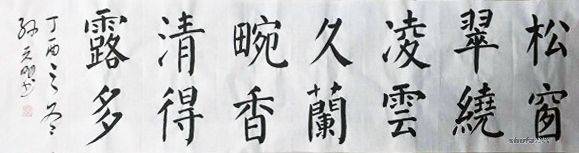 松窗
翠繞
凌雲
久蘭
畹香
清得
露多
丁酉之冬